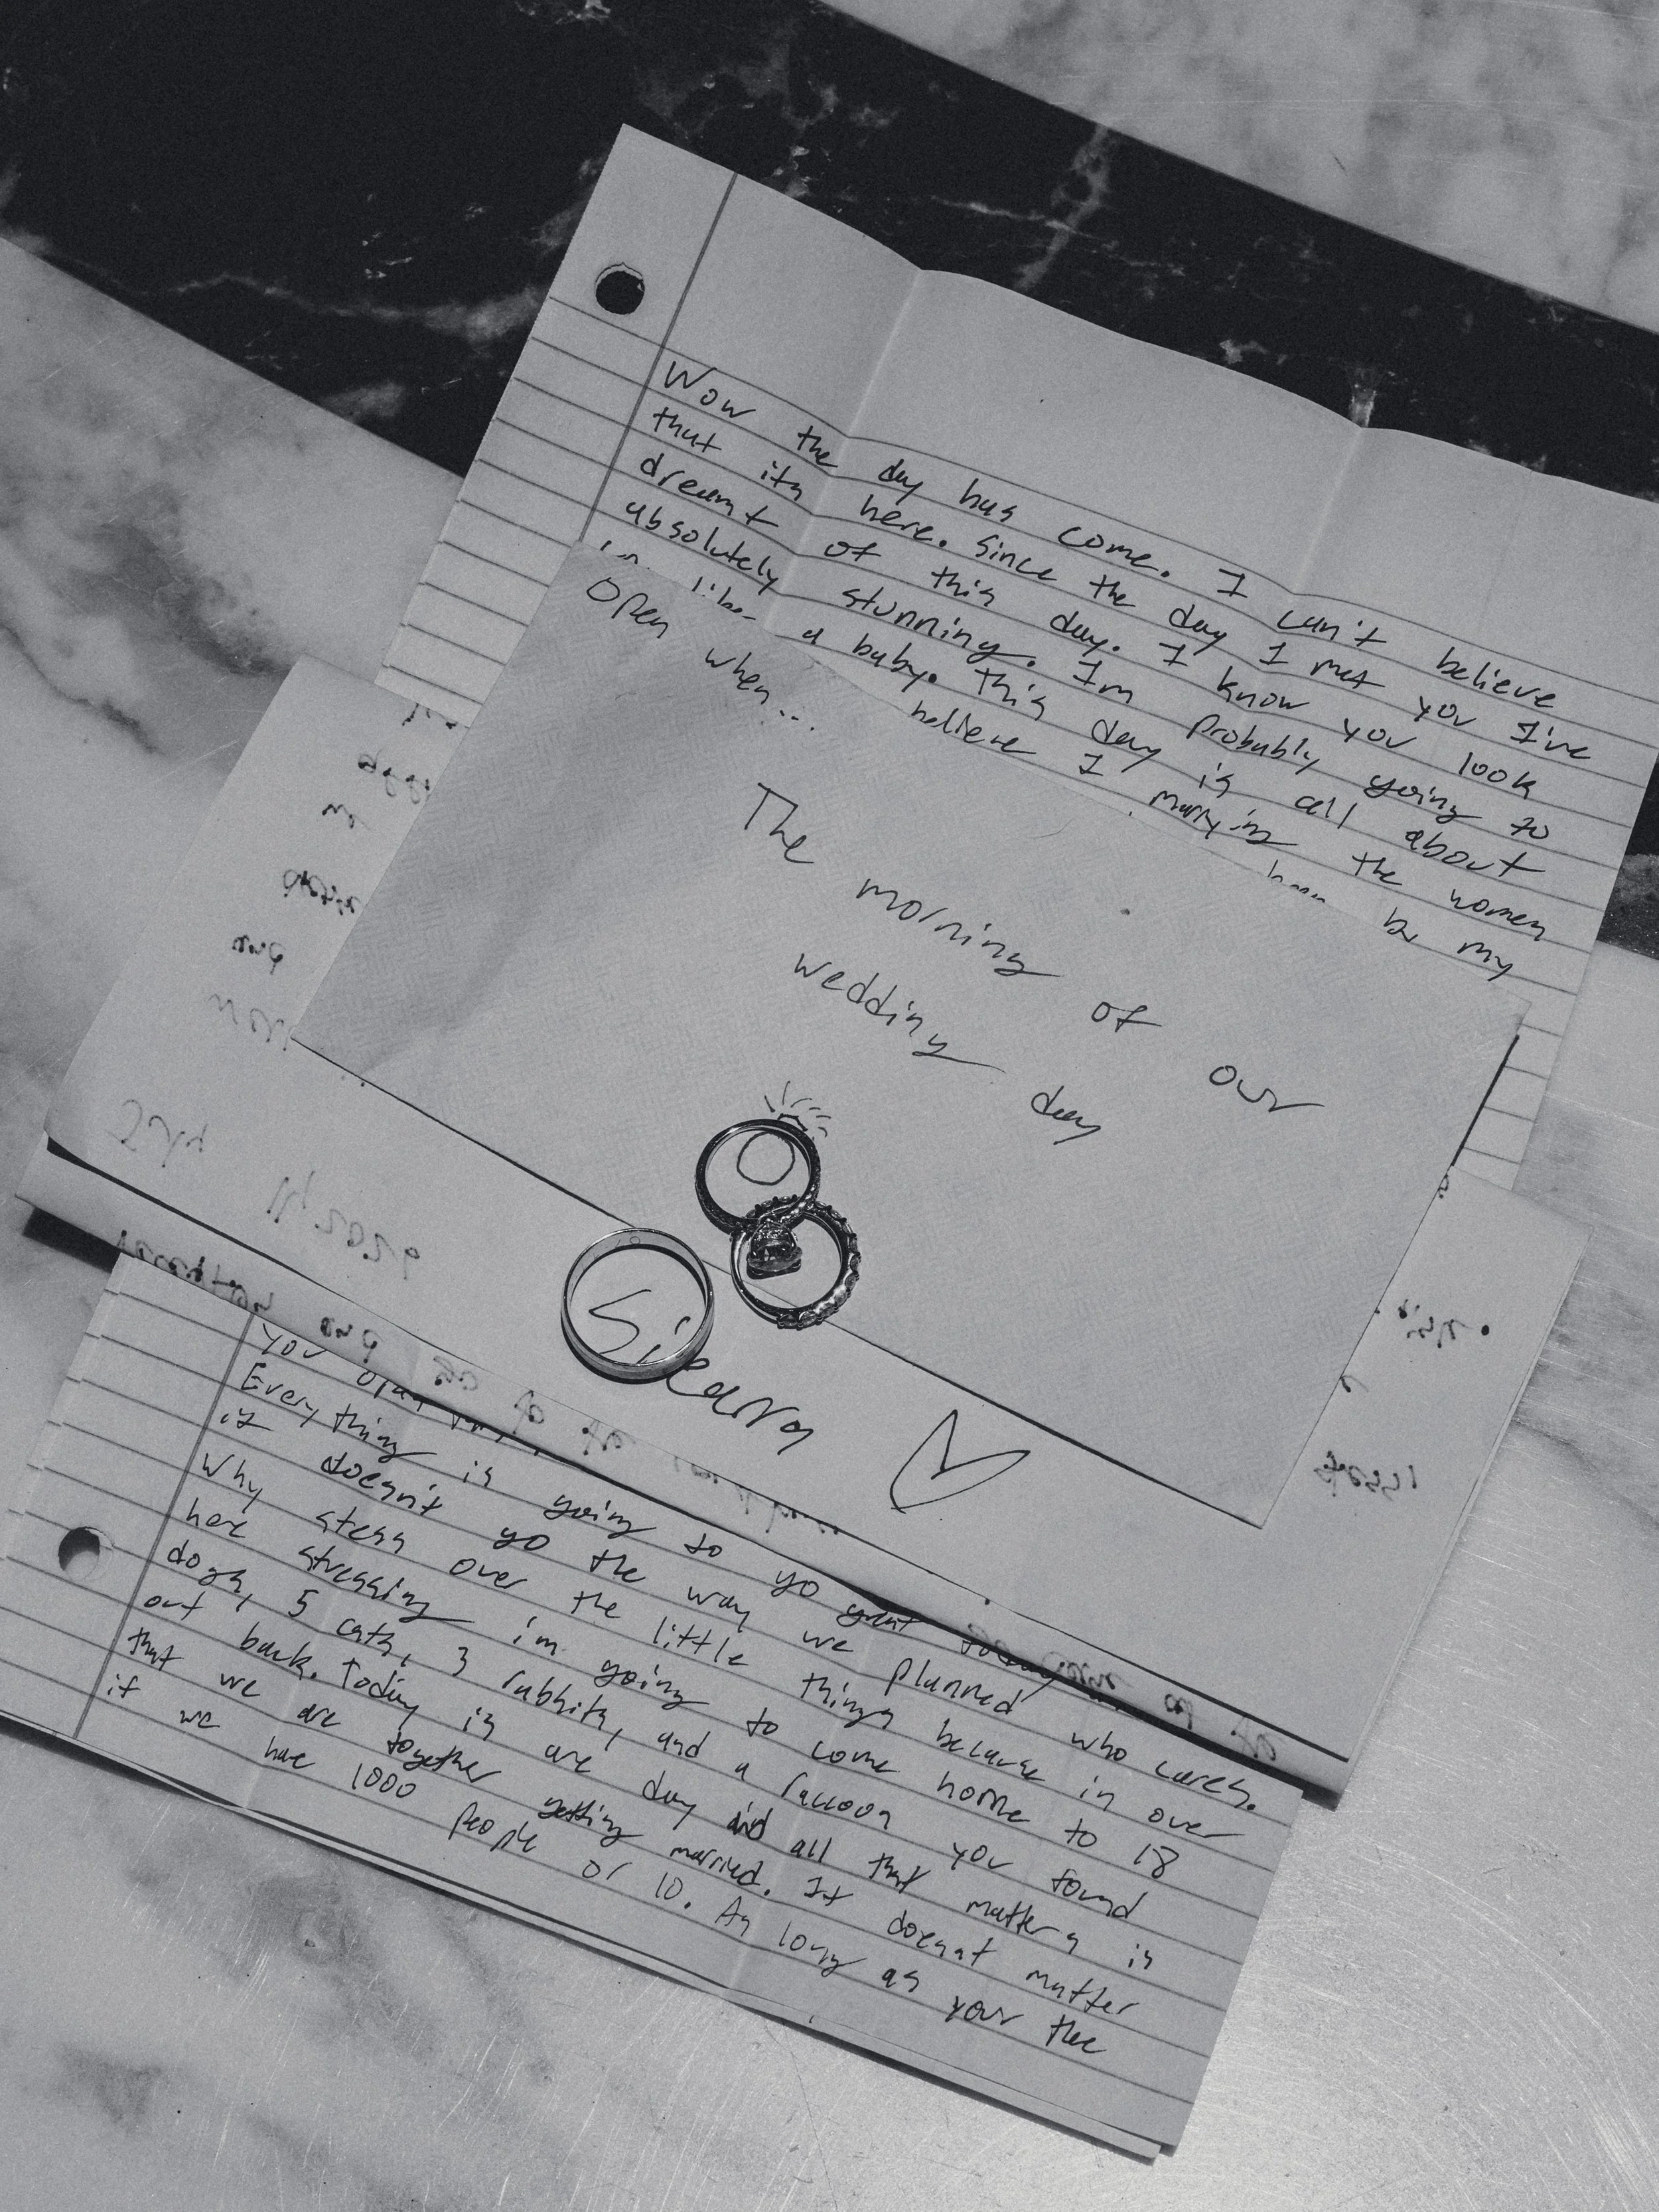 Wow the day has come. I can't believe
that its here. Since the day I met you I've
dreamt of this day. I know you look
absolutely stunning. Im probably going to
like a baby. This day is all about
believe I marrying the women
be my
Open when...
The morning of our
wedding day
Sieara
you open
Everything is going to go great today
if doesn't go the way we planned who cares.
Why stess over the little things because in over
here stressing im going to come home to 18
dogs, 5 cats, 3 rabbits, and a raccoon you found
out back. Today is are day and all that matters is
that we are together getting married. It doesnt matter
if we have 1000 people or 10. As long as your the